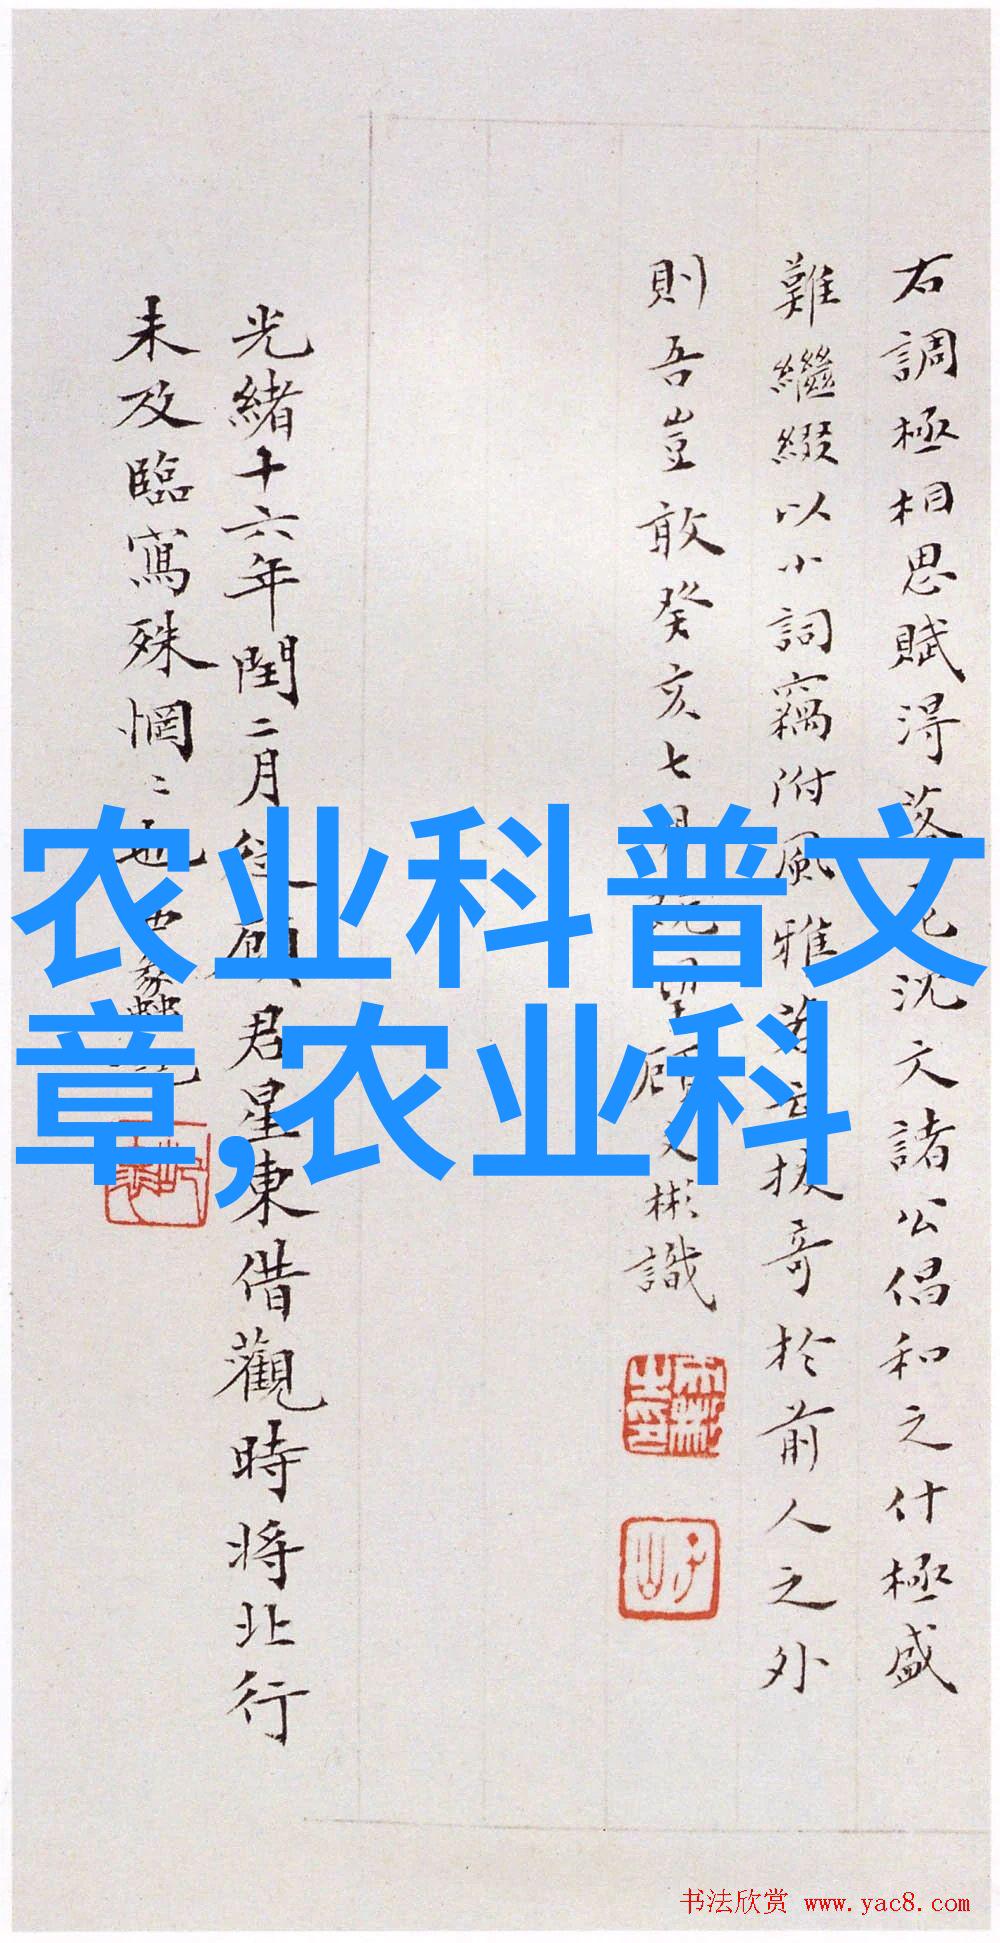 右調極相思賦得落花沈文諸公倡和之什極盛
難繼綴以小詞竊附風雅若云拔奇於前人之外
則吾豈敢癸亥七月 顧文彬識
光緒十六年閏二月從顧君星東借觀時將北行
未及臨寫殊惘〻也西蠡
农业科普文
章,农业科
书法欣赏 www.yac8.com